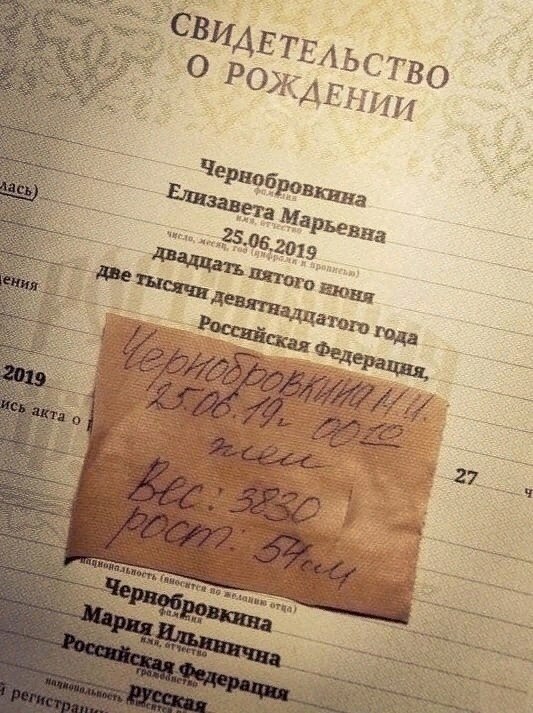 СВИДЕТЕЛЬСТВО
О РОЖДЕНИИ
Чернобровкина
фамилия
лась)
Елизавета Марьевна
имя, отчество
25.06.2019
число, месяц, год (цифрами и прописью)
двадцать пятого июня
две тысячи девятнадцатого года
дения
Российская Федерация,
Чернобровкина М.И.
25.06.19г 00 10
жен
Вес: 3830
рост: 54см
2019
ись акта о
27
национальность (вносится по желанию отца)
Чернобровкина
фамилия
Мария Ильинична
имя, отчество
Российская Федерация
гражданство
русская
национальность
й регистрации